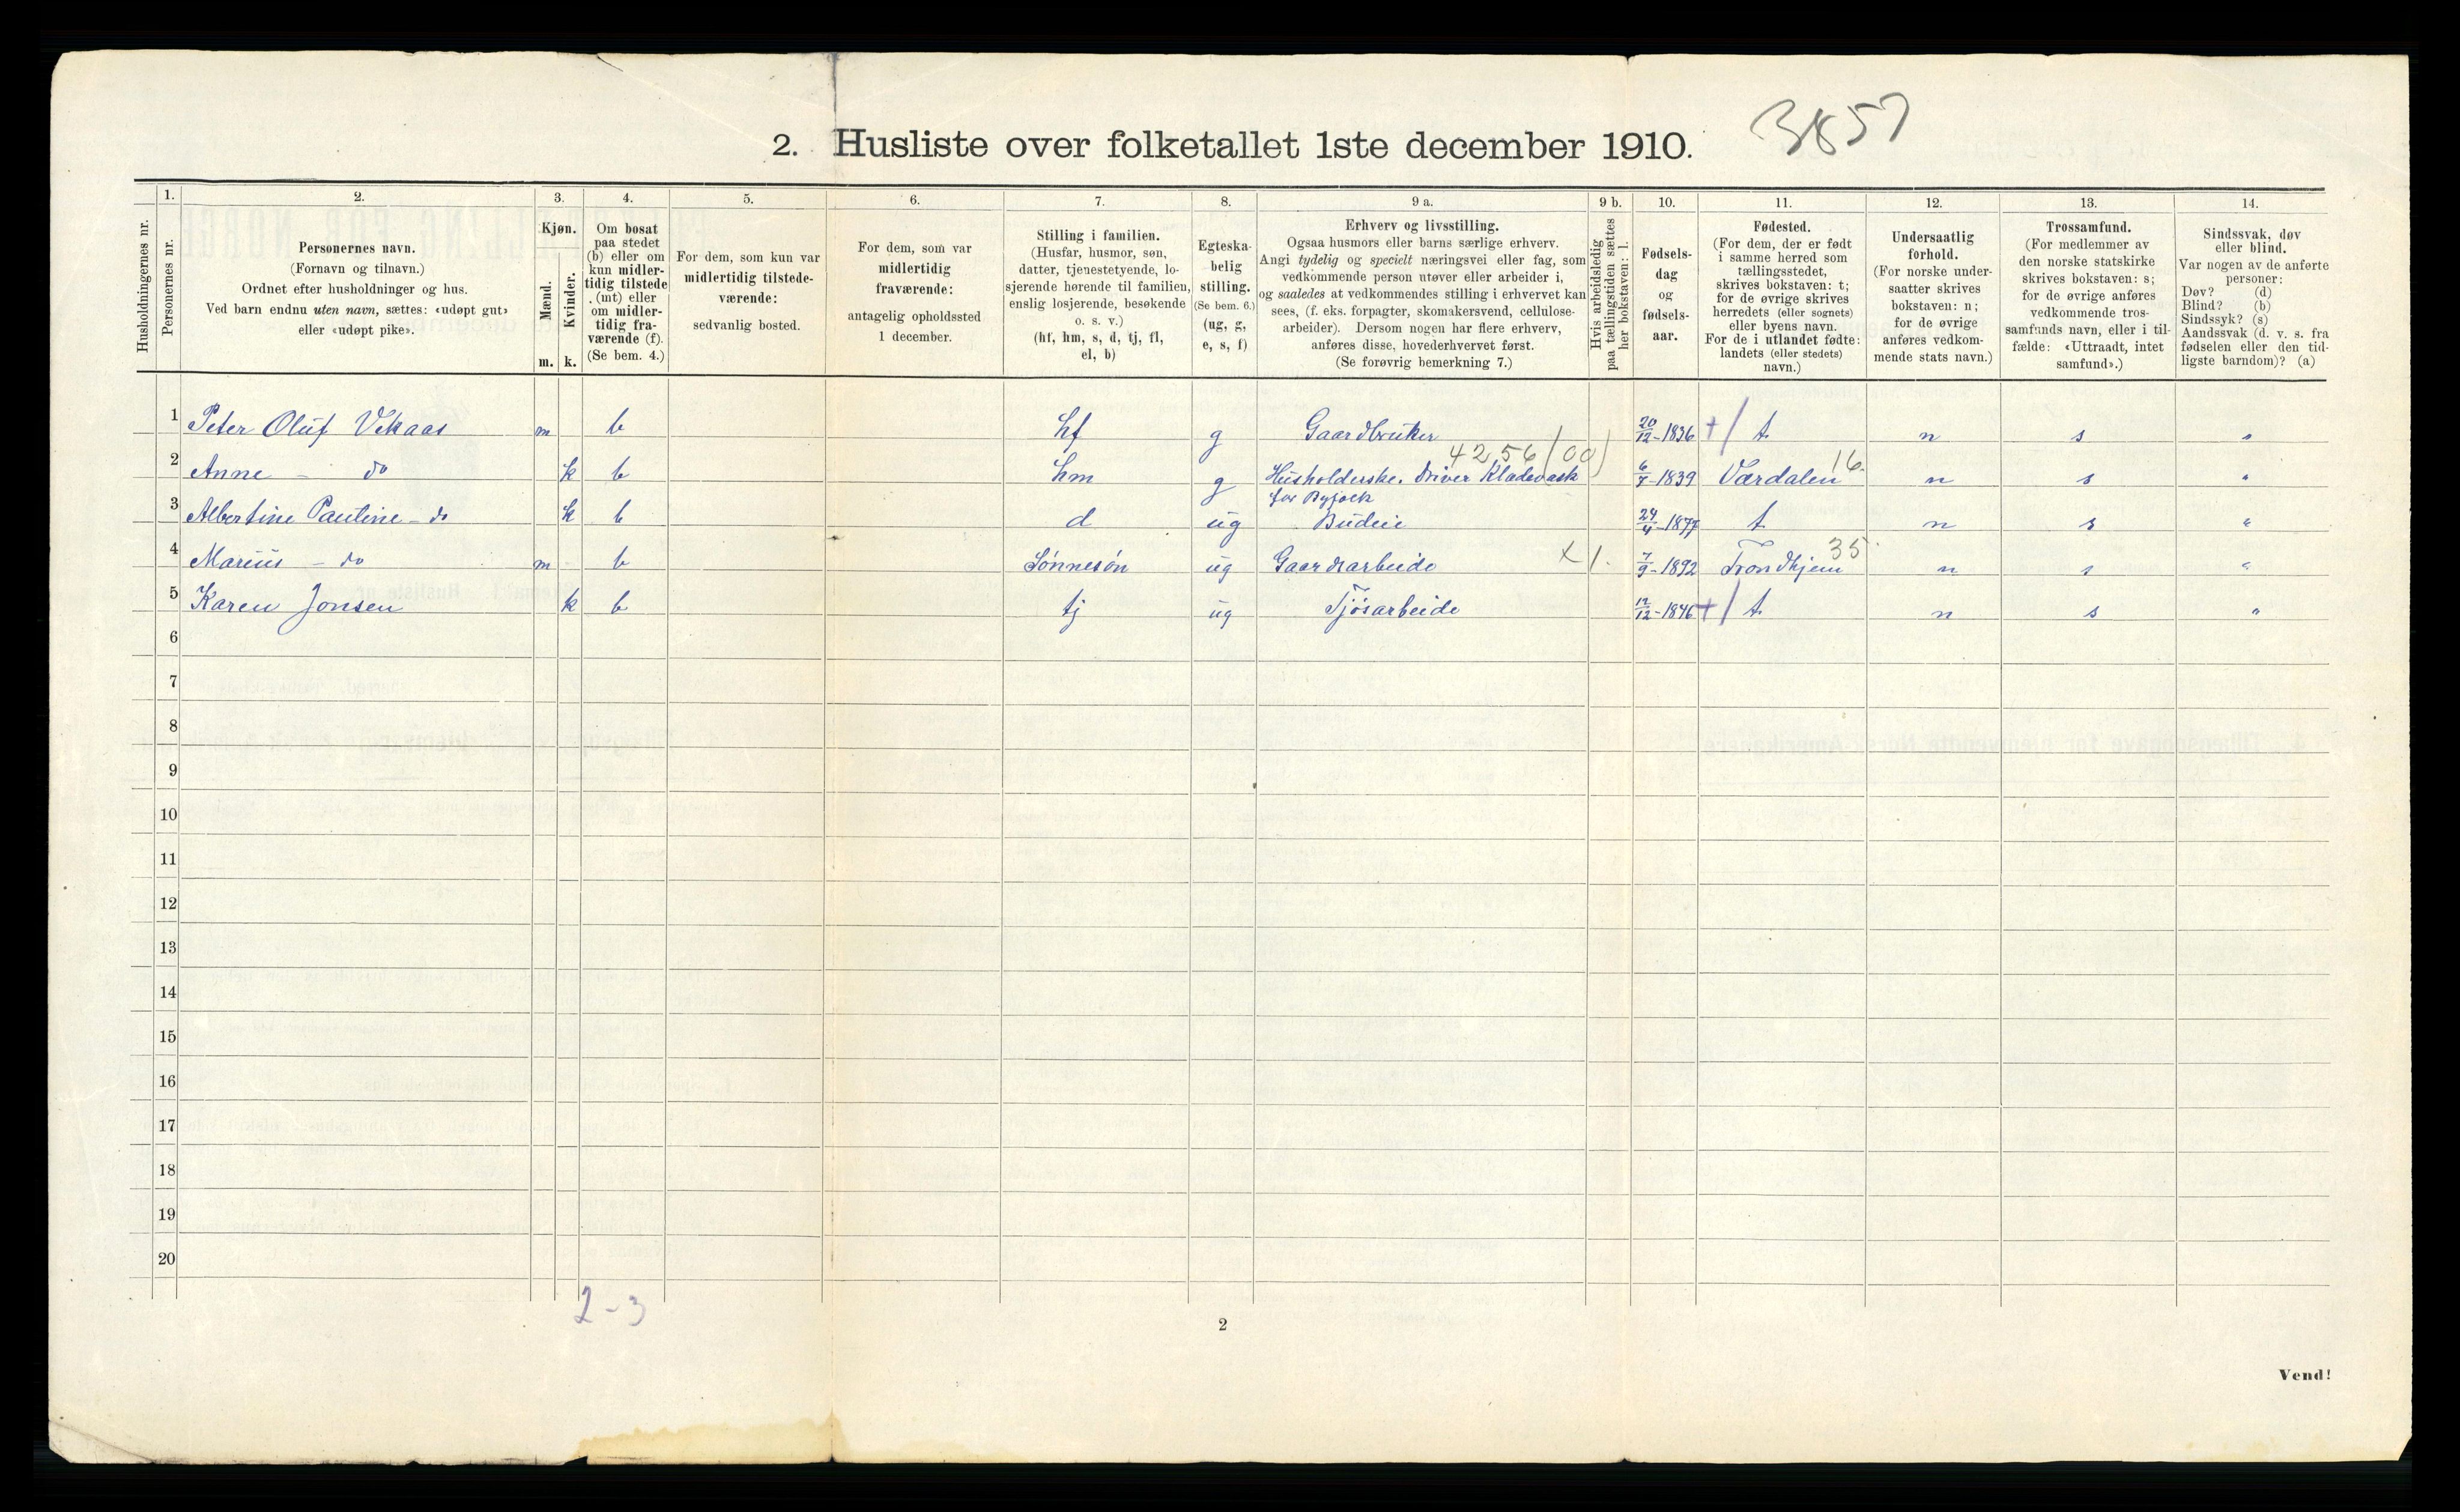 3857
2. Husliste over folketallet 1ste december 1910.
Husholdningernes nr.
1.
Personernes nr.
2.
Personernes navn.
(Fornavn og tilnavn.)
Ordnet efter husholdninger og hus.
Ved barn endnu uten navn, sættes: «udøpt gut»
eller «udøpt pike».
3.
Kjøn.
Mænd.
Kvinder.
m. k.
4.
Om bosat
paa stedet
(b) eller om
kun midler-
tidig tilstede
(mt) eller
om midler-
tidig fra-
værende (f).
(Se bem. 4.)
5.
For dem, som kun var
midlertidig tilstede-
værende:
sedvanlig bosted.
6.
For dem, som var
midlertidig
fraværende:
antagelig opholdssted
1 december.
7.
Stilling i familien.
(Husfar, husmor, søn,
datter, tjenestetyende, lo-
sjerende hørende til familien,
enslig losjerende, besøkende
o. s. v.)
(hf, hm, s, d, tj, fl,
el, b)
8.
Egteska-
belig
stilling.
(Se bem. 6.)
(ug, g,
e, s, f)
9 a.
Erhverv og livsstilling.
Ogsaa husmors eller barns særlige erhverv.
Angi tydelig og specielt næringsvei eller fag, som
vedkommende person utøver eller arbeider i,
og saaledes at vedkommendes stilling i erhvervet kan
sees, (f. eks. forpagter, skomakersvend, cellulose-
arbeider). Dersom nogen har flere erhverv,
anføres disse, hovederhvervet først.
(Se forøvrig bemerkning 7.)
9 b.
Hvis arbeidsledig
paa tællingstiden sættes
her bokstaven: l.
10.
Fødsels-
dag
og
fødsels-
aar.
11.
Fødested.
(For dem, der er født
i samme herred som
tællingsstedet,
skrives bokstaven: t;
for de øvrige skrives
herredets (eller sognets)
eller byens navn.
For de i utlandet fødte:
landets (eller stedets)
navn.)
12.
Undersaatlig
forhold.
(For norske under-
saatter skrives
bokstaven: n;
for de øvrige
anføres vedkom-
mende stats navn.)
13.
Trossamfund.
(For medlemmer av
den norske statskirke
skrives bokstaven: s;
for de øvrige anføres
vedkommende tros-
samfunds navn, eller i til-
fælde: «Uttraadt, intet
samfund».)
14.
Sindssvak, døv
eller blind.
Var nogen av de anførte
personer:
Døv? (d)
Blind? (b)
Sindssyk? (s)
Aandssvak (d. v. s. fra
fødselen eller den tid-
ligste barndom)? (a)
1 Peter Oluf Vekaas m b hf g Gaardbruker 20/12-1836 +/ t n s "
4256/00
2 Anne - do k b hm g Husholderske. Driver Klædevask 6/7-1839 Værdalen 16. n s "
for Byfolk
3 Albertine Pauline - do k b d ug Budeie 24/4-1877 t n s "
4 Marius - do m b Sønnesøn ug Gaardsarbeide X 1. 7/9-1892 Trondhjem 35 n s "
5 Karen Jonsen k b tj ug Fjøsarbeide 12/12-1846 +/ t n s "
6
7
8
9
10
11
12
13
14
15
16
17
18
19
20
2-3
2
Vend!